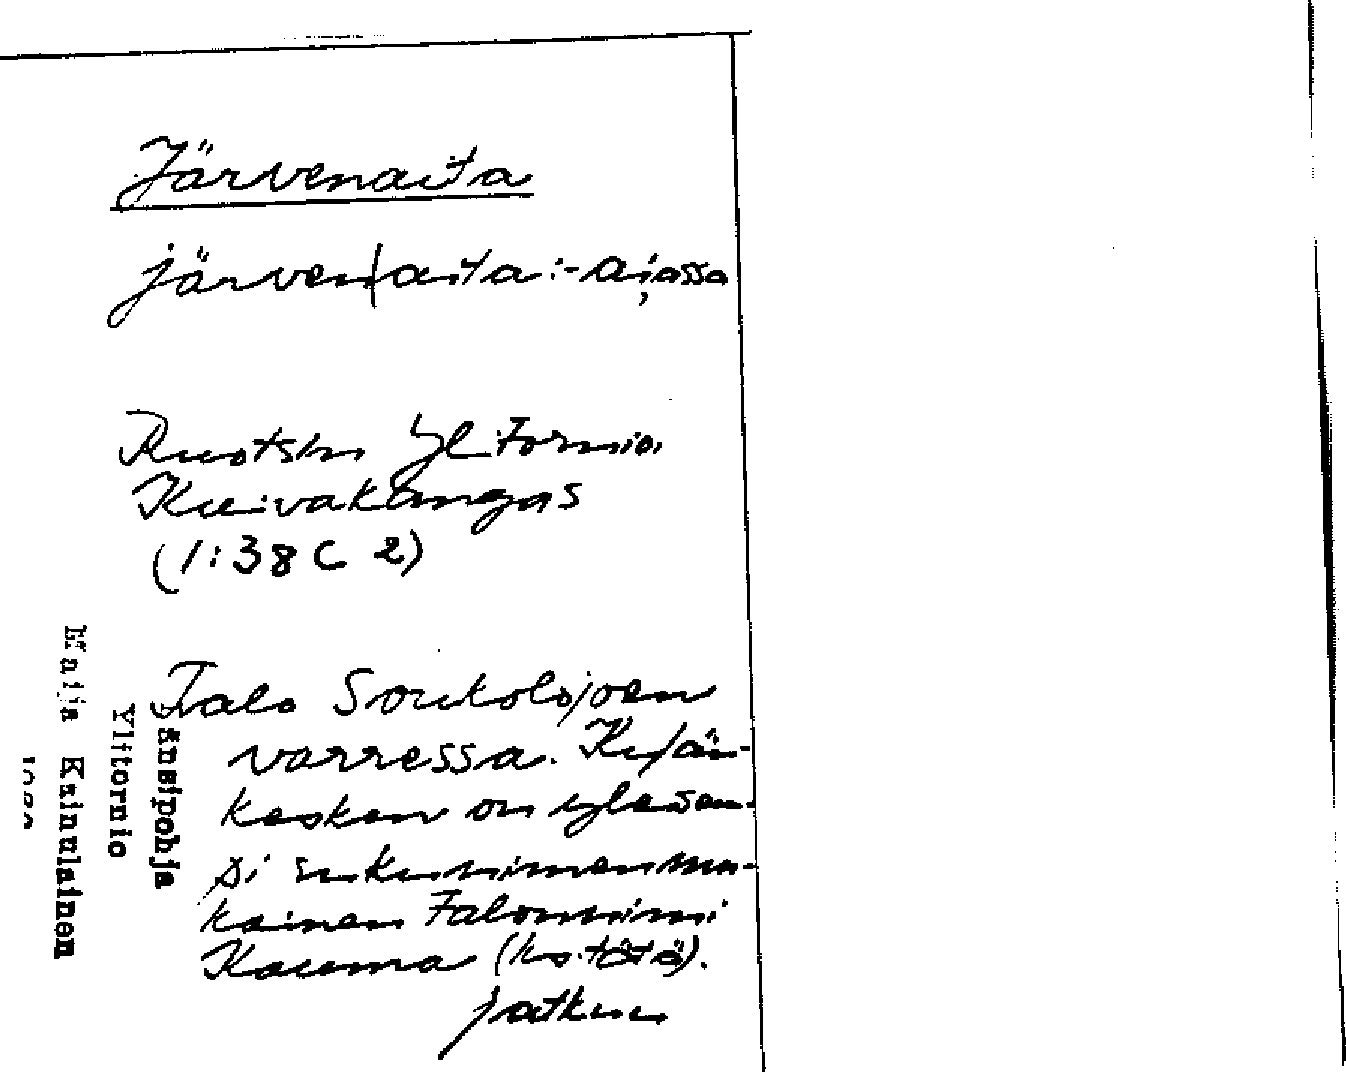 Järvenaita
järven|aita :- aiassa
Ruotsin Ylitornio
Kuivakangas
(1:38 C 2)
Talo Soukolojoen
varressa. Kylän-
kesken on yleisem-
pi sukunimenmu-
kainen talonnimi
Kauma (ks. tätä).
jatkuu
Länsipohja
Ylitornio
Maija Kainulainen